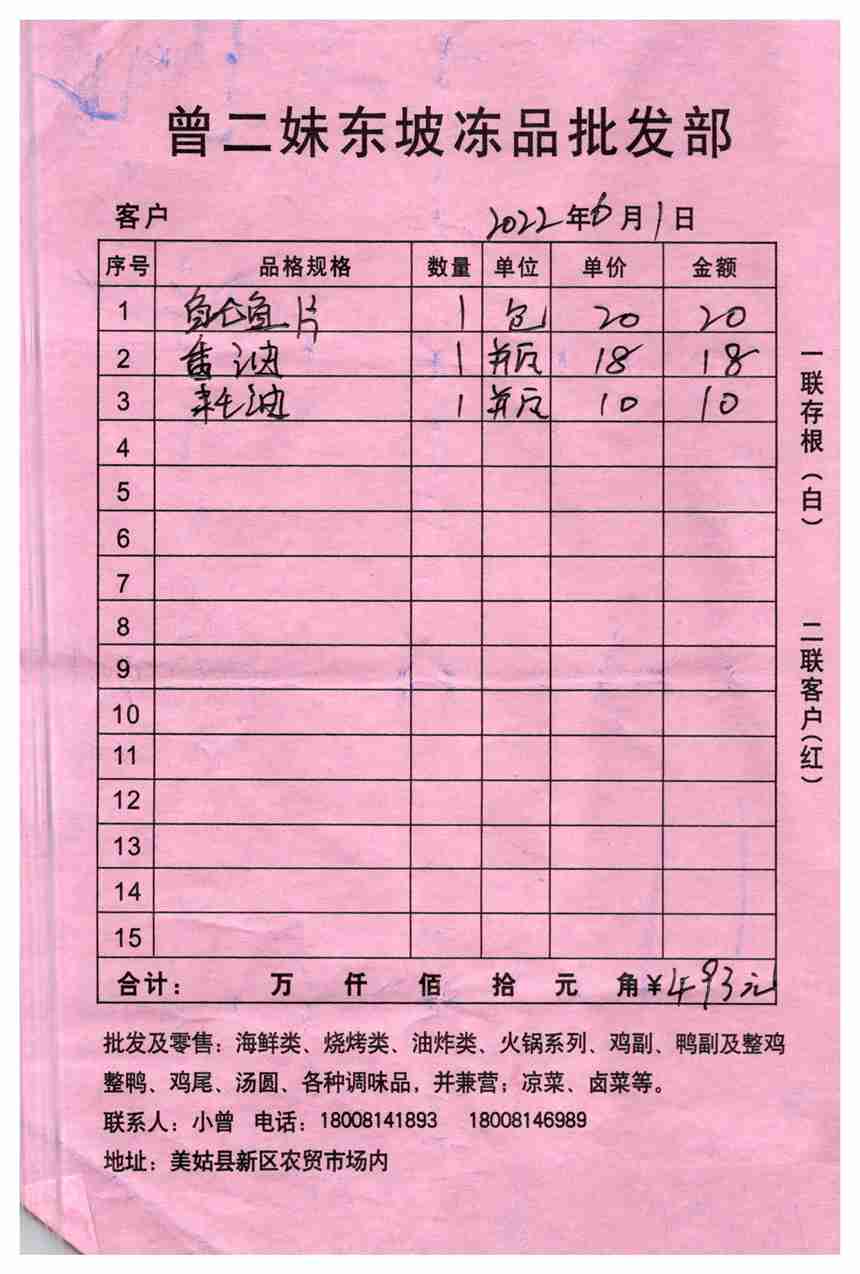 曾二妹东坡冻品批发部
客户 2022年6月1日
序号 品格规格 数量 单位 单价 金额
1 鱼片 1 包 20 20
2 香油 1 瓶 18 18
3 耗油 1 瓶 10 10
4
5
6
7
8
9
10
11
12
13
14
15
合计： 万 仟 佰 拾 元 角¥493元
批发及零售：海鲜类、烧烤类、油炸类、火锅系列、鸡副、鸭副及整鸡
整鸭、鸡尾、汤圆、各种调味品，并兼营；凉菜、卤菜等。
联系人：小曾 电话：18008141893 18008146989
地址：美姑县新区农贸市场内
一联存根（白）
二联客户（红）